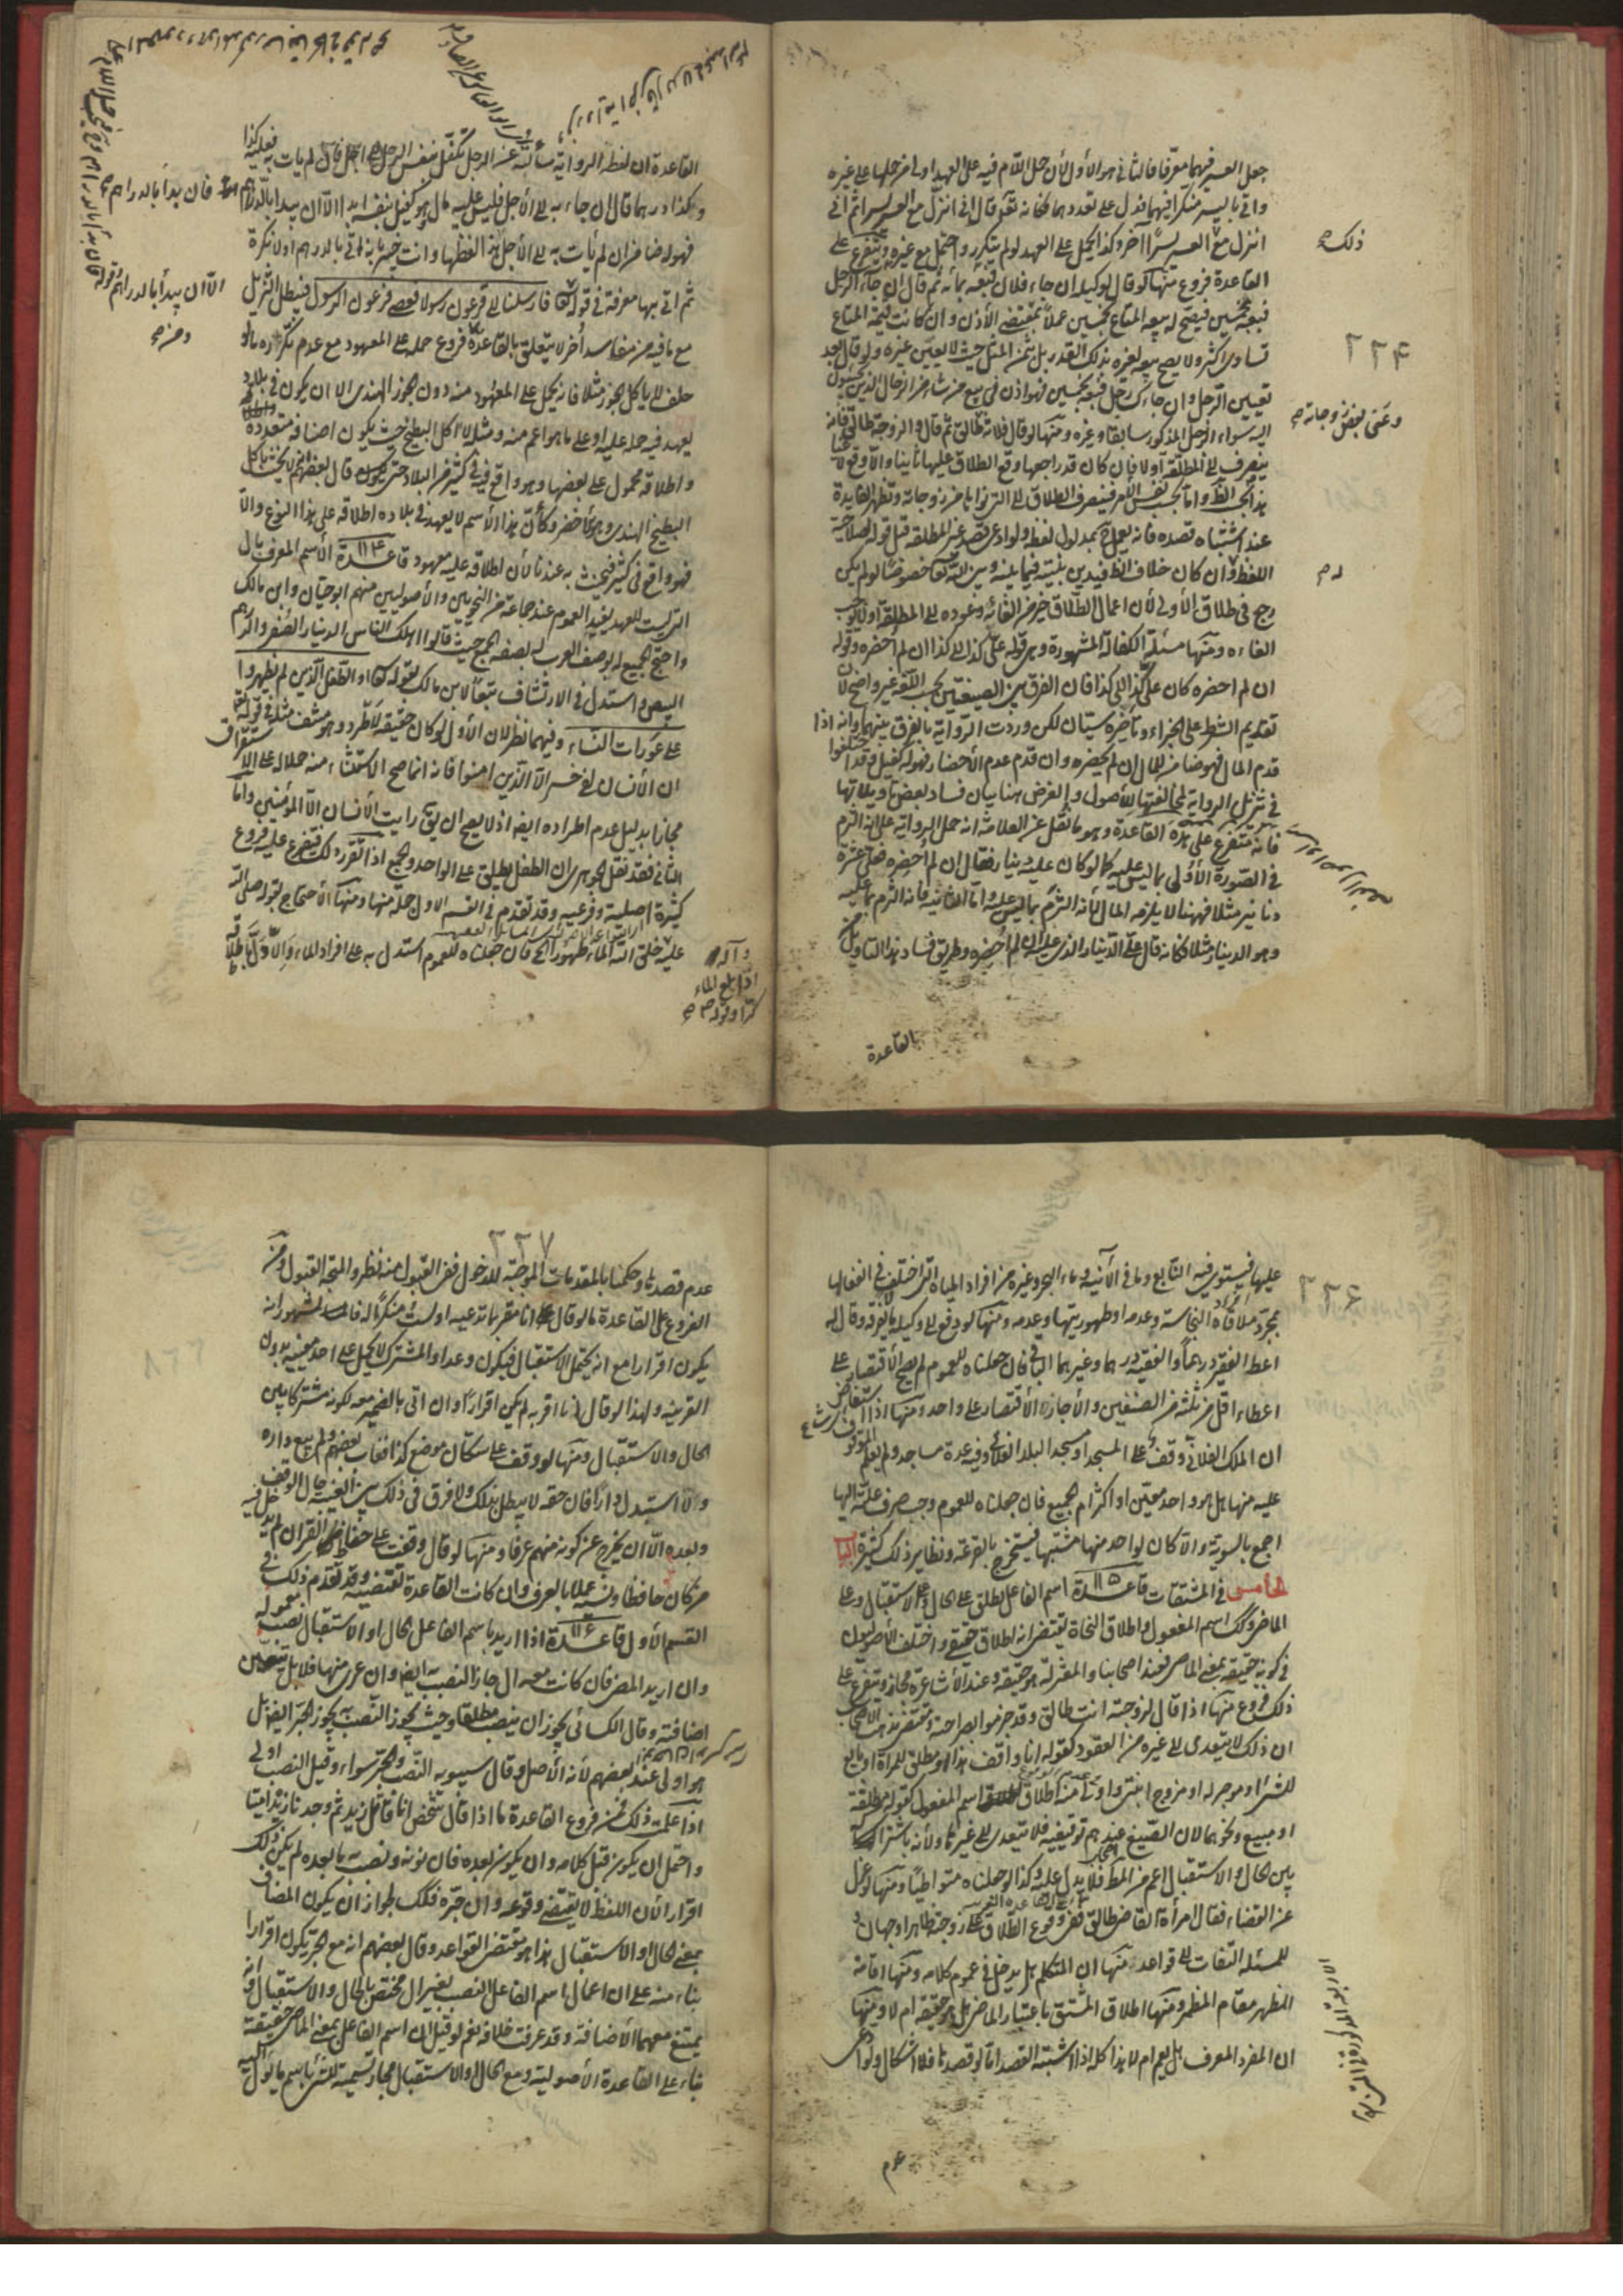 جعل العسر فيهما معرّفا فالثانى هو الأول لأن حمل اللام فيه على العهد اولى من حملها على غيره
واتى باليسر منكرا فيهما فدل على تعددهما فكانه تعالى قال انى انزل مع العسر يسرا ثم انى
انزل مع العسر يسرًا آخر وكذا يحمل على العهد لو لم يتكرر واحتمل مع غيره ويتفرع على
ذلك
القاعدة فروع منها لو قال لوكيله ان جاء فلان فبعه بمأة ثم قال ان جاء الرجل
فبعه بخمسين فيصح له بيعه المتاع بخمسين عملاً بمقتضى الأذن وان كانت قيمة المتاع
تساوى اكثر ولا يصح بيعه لغيره بذلك القدر بل بثمن المثل حيث لا يعين غيره ولو قال بعد
٢٣٤
تعيين الرجل وان جاءك رجل فبعه بخمسين فهو اذن فى بيع من شاء من الرجال الذين يجيئون
اليه سواء الرجل المذكور سابقا وغيره ومنها لو قال فلانة طالق ثم قال والزوجة طالق فانه
وعنى بعض زوجاته
ينصرف الى المطلقة اولا فان كان قد راجعها وقع الطلاق عليها ثانيا والا وقع لاغيا
هذا بحسب الظ واما بحسب نفس الامر فينصرف الطلاق الى التى نواها من زوجاته وتظهر الفايدة
عند اشتباه قصده فانه يعمل ح بمدلول لفظه ولو ادعى قصد غير المطلقة قبل قوله لصلاحية
اللفظ له وان كان خلاف الظ فيدين بنيته فيما بينه وبين الله تعالى خصوصًا لو لم يكن
له
رجع فى طلاق الأولى لأن اعمال الطلاق خير من الغائه وعوده الى المطلقة اولا يوجب
الغاءه ومنها مسئلة الكفالة المشهورة وهى قوله علىّ كذا الى كذا ان لم أحضره وقوله
ان لم احضره كان علىّ كذا الى كذا فان الفرق بين الصيغتين بحسب اللغة غير واضح لأن
تقديم الشرط على الجزاء وتأخيره سيّان لكن وردت الرواية بالفرق بينهما وانه اذا
قدم المال فهو ضامن للمال ان لم يحضره وان قدم عدم الأحضار فهو له كفيل وقد اختلفوا
فى تنزيل الرواية لمخالفتها للأصول والغرض هنا بيان فساد بعض تأويلاتها
فانه متفرع على هذه القاعدة وهو ما نقل عن العلامة انه حمل الرواية على انه التزم
فى الصورة الأولى بما ليس عليه كما لو كان عليه دينار فقال ان لم أحضره فعلىّ عشرة
دنانير مثلا فههنا لا يلزمه المال لأنه التزم بما ليس عليه واما الثانية فانه التزم بما عليه
وهو الدينار مثلا فكانه قال علىّ الدينار الذى عليه ان لم أحضره وطريق فساد هذا التأويل من
بالقاعدة
القاعدة ان لفظ الرواية سألته عن الرجل تكفل بنفس الرجل الى اجل فان لم يأت به فعليه كذا
وكذا درهما قال ان جاء به الى الأجل فليس عليه مال وهو كفيل بنفسه ابدا الّا ان يبدأ بالدراهم فان بدأ بالدراهم
فهو له ضامن ان لم يأت به الى الأجل هذا لفظها وانت خبير بانه اتى بالدرهم اولا نكرة
الّا ان يبدأ بالدراهم
ثم اتى بها معرفة فى قوله تعالى فارسلنا الى فرعون رسولا فعصى فرعون الرسول فيبطل التنزيل
مع ما فيه من مفاسد أخر لا يتعلق بالقاعدة ومن فروع حمله على المعهود مع عدم تكرره ما لو
حلف لا ياكل الجوز مثلا فانه يحمل على المعهود منه دون جوز الهندى الا ان يكون فى بلاد
يعهد فيه حمله عليه او على ما هو اعم منه ومثله لا اكل البطيخ حيث يكون اصنافه متعددة
واطلاقه محمول على بعضها وهو واقع فى كثير من البلاد حتى قال بعضهم لا يحنث باكل
البطيخ الهندى وهو الأخضر وكأنّ هذا الأسم لا يعهد فى بلاده اطلاقه على هذا النوع والّا
فهو واقع فى كثير فيحنث به عندنا لأن اطلاقه عليه معهود قاعدة ١١٤ الأسم المعرف بال
التى ليست للعهد يفيد العموم عند جماعة من النحويين والأصوليين منهم ابو حيّان وابن مالك
واحتج الجميع له بوصف العرب له بصفة الجمع حيث قالوا اهلك الناس الدينار الصفر والدرهم
البيض واستدل فى الارتشاف تبعًا لابن مالك لقوله تعالى او الطفل الذين لم يظهروا
على عورات النساء وفيهما نظر لان الأول لو كان حقيقة لاطّرد وهو منتف مثله فى قوله تعالى
ان الأنسان لفى خسر الّا الذين امنوا فانه انما صح الاستثناء منه حملا له على الاستغراق
مجازا بدليل عدم اطراده ايضا اذ لا يصح ان يق رايت الأنسان الا المؤمنين واما
الثانى فقد نقل الجوهرى ان الطفل يطلق على الواحد والجمع اذا تقرر ذلك فيتفرع عليه فروع
كثيرة اصلية وفرعية وقد تقدم فى القسم الاول جملة منها ومنها الأحتجاج بقوله صلى الله
عليه خلق الله الماء طهورا الخ فان جعلناه للعموم استدل به على افراد الماء والّا دلّ باطلاقه
وآله
اذا بلغ الماء
كرّا وقوله ص
٢٣٦
عليها فيستوى فيه النابع وما فى الآنية وماء البحر وغيره من افراد المياه التى اختلف فى انفعالها
بمجرد ملاقاة النجاسة وعدمه او طهوريتها وعدمه ومنها لو دفع الى وكيله ما يفرقه وقال له
اعط الفقير درهماً والفقيه درهما وغيرهما الباقى فان حملناه للعموم لم يصح الأقتصار على
اعطاء اقل من ثلثة من الصنفين والأجاز الأقتصار على واحد ومنها اذا استفاض
ان الملك الفلانى وقف على المسجد او مسجد البلد الفلانى وفيه عدة مساجد ولم يعلم الموقوف
عليه منها هل هو واحد معين او اكثر ام الجميع فان حملناه للعموم وجب صرف غلته اليها
اجمع بالسوية والا كان لواحد منها مشتبها فيستخرج بالقرعة ونظاير ذلك كثيرة الباب
الخامس فى المشتقات قاعدة ١١٥ اسم الفاعل يطلق على الحال وعلى الاستقبال وعلى
الماضى وكك اسم المفعول واطلاق النحاة يقتضى انه اطلاق حقيقى واختلف الأصوليون
فى كونه حقيقة بمعنى الماضى فعند اصحابنا والمعتزلة هو حقيقة وعند الأشاعرة مجاز ويتفرع على
ذلك فروع منها اذا قال لزوجته انت طالق وقد جزموا بصراحته ومقتضى مذهب الأصحاب
ان ذلك لا يتعدى الى غيره من العقود كقوله انا واقف هذا او مطلق للمرأة او بايع
للشئ او موجر له او مزوج ابنتى واولى منه اطلاق اسم المفعول كقوله مطلقة
او مبيع ونحوهما لان الصيغ عندهم توقيفية فلا يتعدى الى غيرها ولأنه باشتراكه
بين الحال والاستقبال اعم من المط فلا يدل عليه وكذا لو جعلناه متواطيًا ومنها لو عزل
عن القضاء فقال امرأة القاضى طالق ففى وقوع الطلاق على زوجته ظاهرا وجهان و
للمسئلة التفات الى قواعد منها ان المتكلم هل يدخل فى عموم كلامه ومنها اقامة
المظهر مقام المضمر ومنها اطلاق المشتق باعتبار الماضى هل هو حقيقة ام لا ومنها
ان المفرد المعرف هل يعم ام لا هذا كله اذا اشتبه القصد اما لو قصدها فلا اشكال ولو ادعى
٢٣٧
عدم قصدها وحكمنا بالمقدمات الموجبة للدخول ففى القبول منه نظر والمتجه القبول ومن
الفروع على القاعدة ما لو قال انا مقر بما تدعيه او لست منكرًا له فالمشهور انه
يكون اقرارا مع انه يحتمل الاستقبال فيكون وعدا والمشترك لا يحمل على احد معنييه بدون
القرينة ولهذا لو قال انا اقر به لم يكن اقرارًا وان اتى بالضمير معه لكونه مشتركا بين
الحال والاستقبال ومنها لو وقف على سكان موضع كذا فغاب بعضهم ولم يبع داره
ولا استبدل دارًا فان حقه لا يبطل بذلك ولا فرق فى ذلك بين الغيبة حال الوقف
وبعده الّا ان يخرج عن كونه منهم عرفا ومنها لو قال وقفت على حفاظ القران لم يدخل فيه
من كان حافظا ونسيه عملا بالعرف وان كانت القاعدة تقتضيه وقد تقدم ذلك فى
القسم الأول قاعدة ١١٦ اذا اريد باسم الفاعل الحال او الاستقبال نصب معموله
وان اريد المضى فان كانت معه ال جاز النصب به ايضا وان عرى منها فلا بل يتعين
اضافته وقال الكسائى يجوز ان ينصب مطلقا وحيث يجوز النصب به يجوز الجر ايضا بل
هو اولى عند بعضهم لأنه الأصل وقال سيبويه النصب والجر سواء وقيل النصب اولى
اذا علمت ذلك فمن فروع القاعدة ما اذا قال شخص انا قاتل زيد ثم وجدنا زيدا ميتا
واحتمل ان يكون قبل كلامه وان يكون بعده فان نونه ونصب ما بعده لم يكن ذلك
اقرارا لأن اللفظ لا يقتضى وقوعه وان جرّه فكك لجواز ان يكون المضاف
بمعنى الحال او الاستقبال هذا هو مقتضى القواعد وقال بعضهم انه مع الجر يكون اقرارا
بناء منه على ان اعمال اسم الفاعل النصب بغير ال مختص بالحال والاستقبال وانه
يمتنع معهما الأضافة وقد عرفت خلافه نعم لو قيل ان اسم الفاعل بمعنى الماضى حقيقة
بناء على القاعدة الأصولية ومع الحال والاستقبال مجاز تسمية للشئ باسم ما يؤل اليه